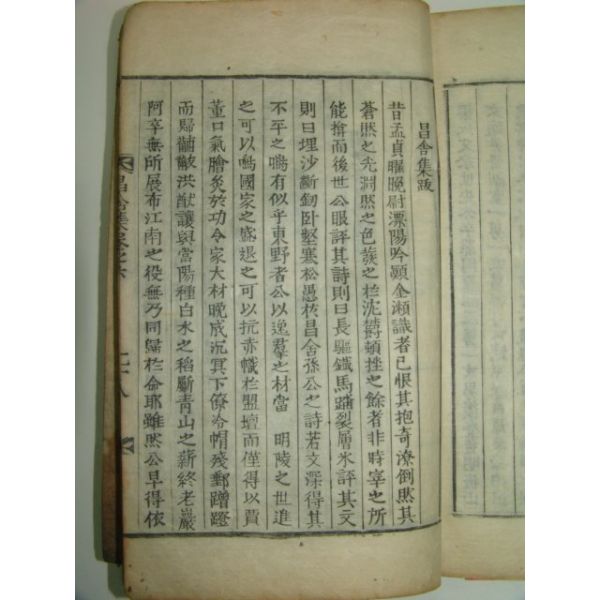 昌舍集跋
昔孟貞曜晚尉溧陽吟嘯金瀨識者已恨其抱奇潦倒然其
蒼然之光淵然之色發之於沈欝頓挫之餘者非時宰之所
能揜而後世公眼評其詩則曰長驅鐵馬踊裂層氷評其文
則曰埋沙斷釰卧壑寒松愚於昌舍孫公之詩若文深得其
不平之鳴有似乎東野者公以逸羣之材當 明陵之世進
之可以鳴國家之盛退之可以抗赤幟於盟壇而僅得以賈
董口氣膾炙於功令家大材晚成沉冥下僚冷帽殘郵蹭蹬
而歸黼黻洪猷讓與當陽種白水之稻斸青山之薪終老巖
阿卒無所展布江南之役無乃同歸於命耶雖然公早得依
昌舍集卷之六
二十八